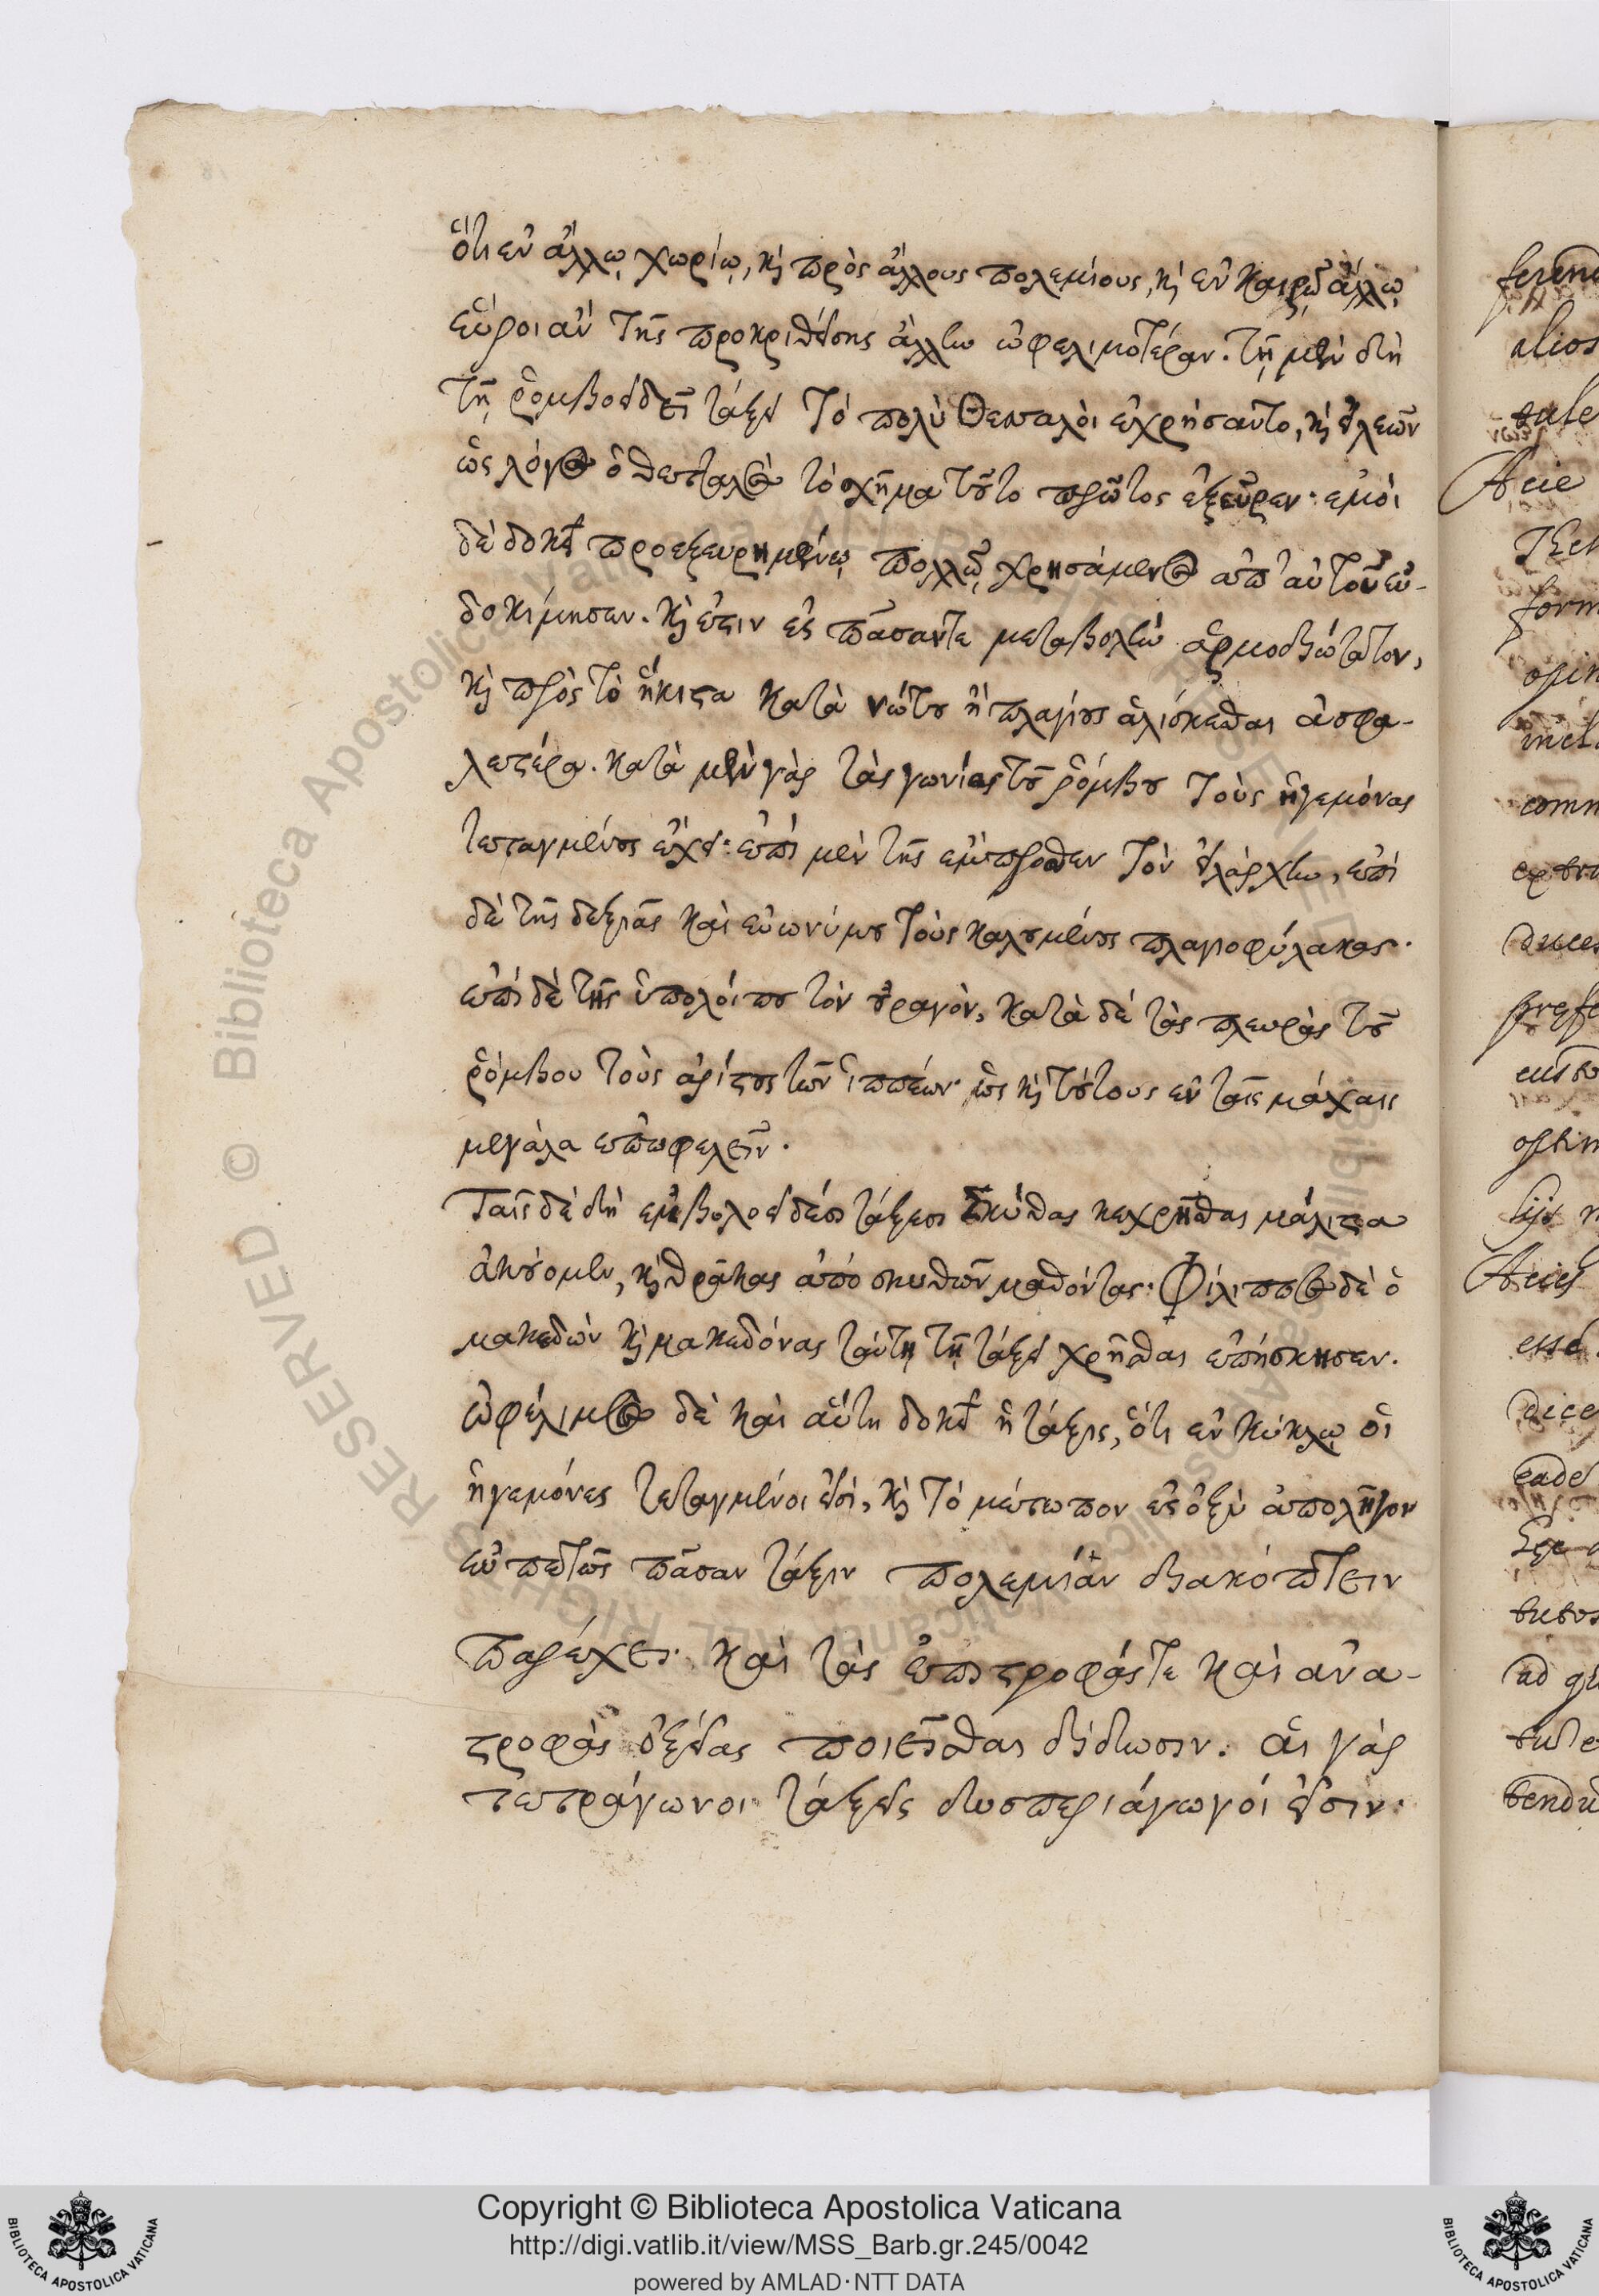 ὅτι ἐν ἄλλῳ χωρίῳ, καὶ πρὸς ἄλλους πολεμίους, καὶ ἐν καιρῷ ἄλλῳ
εὕροι ἂν τῆς προκριθείσης ἄλλην ὠφελιμοτέραν. τῇ μὲν δὴ
τῇ ῥομβοειδεῖ τάξει τὸ πολὺ Θεσσαλοὶ ἐχρήσαντο, καὶ εἰλεῶν
ὡς λόγος ὁ θετταλὸς τὸ σχῆμα τοῦτο πρῶτος ἐξεῦρεν· ἐμοὶ
δὲ δοκεῖ προεξευρημένῳ πολλῷ χρησάμενος ἀπ' αὐτοῦ εὐ-
δοκίμησεν. καὶ ἔστιν ἐς πᾶσαν τε μεταβολὴν ἁρμοδιώτατον,
καὶ πρὸς τὸ ἥκιστα κατὰ νώτου ἢ πλαγίους ἁλίσκεσθαι ἀσφα-
λεστέρα. κατὰ μὲν γὰρ τὰς γωνίας τοῦ ῥόμβου τοὺς ἡγεμόνας
τεταγμένους ἔχει· ἐπὶ μὲν τῆς ἔμπροσθεν τὸν εἰλάρχην, ἐπὶ
δὲ τῆς δεξιᾶς καὶ εὐωνύμου τοὺς καλουμένους πλαγιοφύλακας·
ἐπὶ δὲ τῆς ὑπολοίπου τὸν οὐραγὸν, κατὰ δὲ τὰς πλευρὰς τοῦ
ῥόμβου τοὺς ἀρίστους τῶν ἱππέων· ὡς καὶ τούτους ἐν ταῖς μάχαις
μεγάλα ἐπωφελεῖν.
Ταῖς δὲ δὴ ἐμβολοειδέσι τάξεσι Σκύθας κεχρῆσθαι μάλιστα
ἀκούομεν, καὶ θρᾷκας ἀπὸ σκυθῶν μαθόντας· Φίλιππος δὲ ὁ
μακεδὼν καὶ μακεδόνας ταύτῃ τῇ τάξει χρῆσθαι ἐπήσκησεν.
ὠφέλιμος δὲ καὶ αὕτη δοκεῖ ἡ τάξις, ὅτι ἐν κύκλῳ οἱ
ἡγεμόνες τεταγμένοι εἰσὶ, καὶ τὸ μέτωπον ἐς ὀξὺ ἀπολῆγον
εὐπετῶς πᾶσαν τάξιν πολεμίαν διακόπτειν
παρέχει· καὶ τὰς ἐπιστροφάς τε καὶ ἀνα-
στροφὰς ὀξείας ποιεῖσθαι δίδωσιν. αἱ γὰρ
τετράγωνοι τάξεις δυσπεριάγωγοί εἰσιν·
Copyright © Biblioteca Apostolica Vaticana
http://digi.vatlib.it/view/MSS_Barb.gr.245/0042
powered by AMLAD·NTT DATA